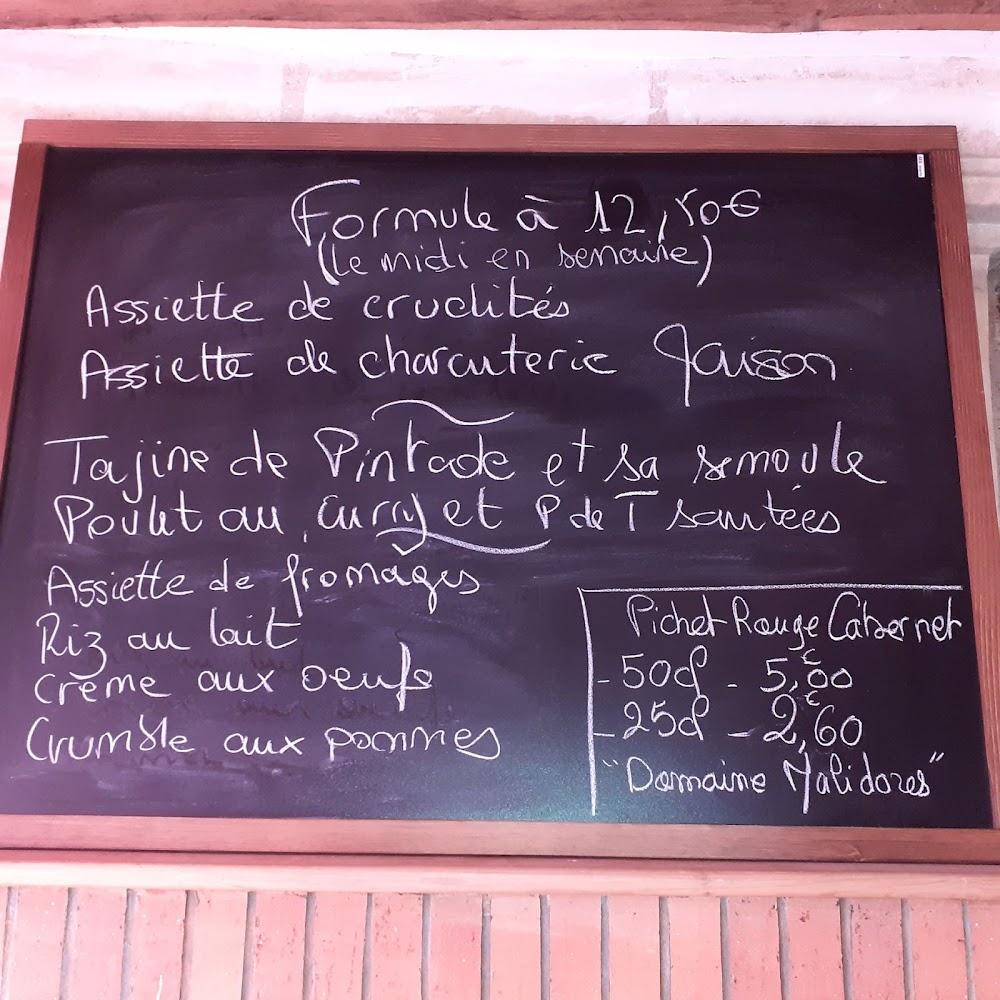 Formule à 12,50€
(Le midi en semaine)
Assiette de crudités
Assiette de charcuterie Maison
Tajine de Pintade et sa semoule
Poulet au curry et P de T sautées
Assiette de fromages
Riz au lait
Crème aux oeufs
Crumble aux pommes
Pichet Rouge Cabernet
- 50cl - 5,€00
- 25cl - 2,€60
"Domaine Malidores"